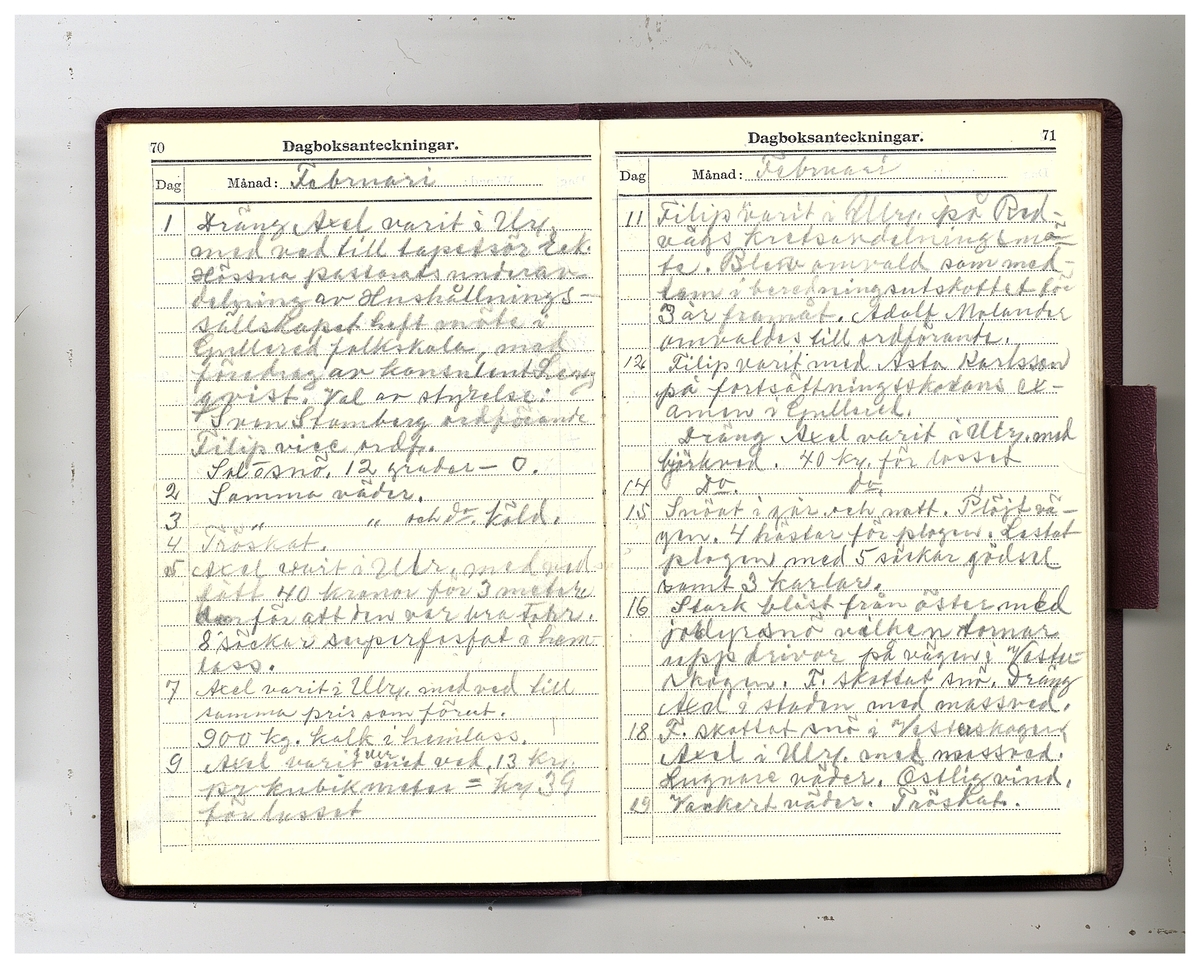 70
Dagboksanteckningar.
Dag
Månad: Februari
1 Dräng Axel varit i Ulr.
med ved till tapetsör Eek.
Hössna pastorats underav-
delning av Hushållnings-
sällskapet haft möte i
Gullered folkskola, med
föredrag av konsulent
qvist. Val av styrelse:
Sven Stomberg ordförande
Filip vice ordf.
Sol o snö. 12 grader – 0.
2 Samma väder.
3 „ „ och do. köld.
4 Tröskat.
5 Axel varit i Ulr. med ved
fått 40 kronor för 3 meter
för att den var bra torr.
8 säckar superfosfat i hem-
lass.
7 Axel varit i Ulr. med ved till
samma pris som förut.
900 kg. kalk i hemlass.
9 Axel varit i Ulr. med ved, 13 kr.
pr kubikmeter = kr 39
för lasset
71
Dagboksanteckningar.
Dag
Månad: Februari
11 Filip varit i Ulr. på Red-
vägs kretsavdelnings mö-
te. Blev omvald som med-
lem i beredningsutskottet för
3 år framåt. Adolf Molander
omvaldes till ordförande.
12 Filip varit med Asta Karlsson
på fortsättningsskolans ex-
amen i Gullered.
Dräng Axel varit i Ulr. med
björkved. 40 kr. för lasset
14 Do. do. „
15 Snöat i går och natt. Plöjt vä-
gen. 4 hästar för plogen. Lastat
plogen med 5 säckar gödsel
samt 3 karlar.
16 Stark blåst från öster med
snö vilken tornar
upp drivor på vägen i Väster-
skogen. F. skottat snö. Dräng
Axel i staden med massved.
18 F. skottat snö i Västerskogen,
Axel i Ulr. med massved.
Lugnare väder. Ostlig vind.
19 Vackert väder. Tröskat.